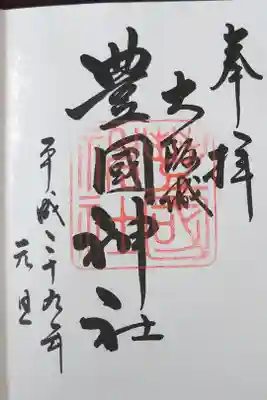 奉拝
大阪城
豊國神社
平成二十九年
元旦